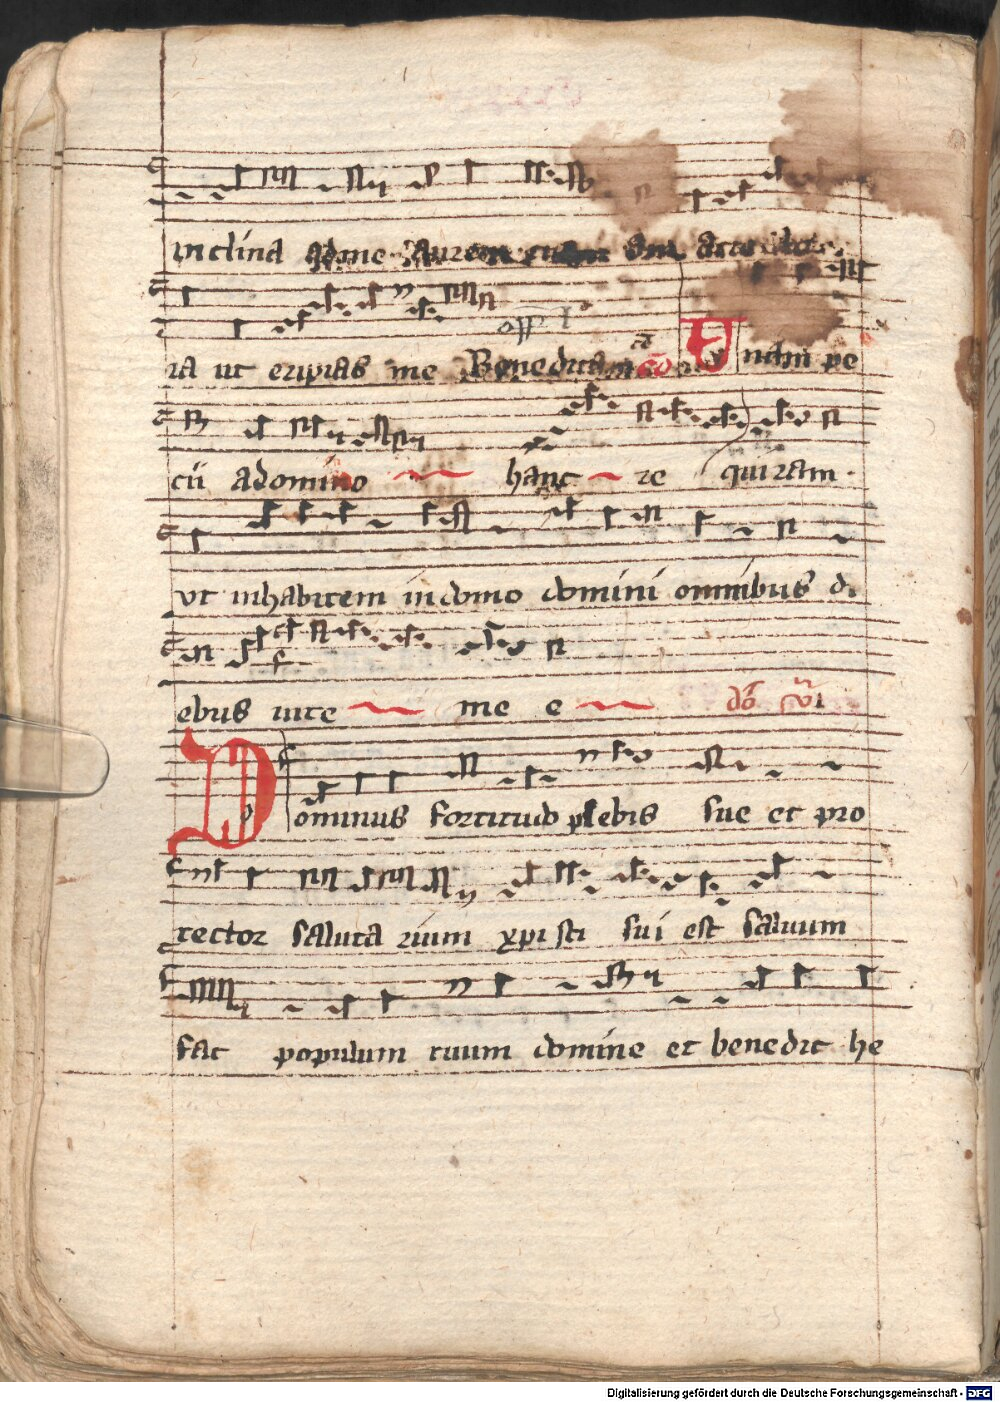 inclina ad me aurem tuam acce
ra ut eripias me Benedicam cō Unam pe
cii a domino hanc re quiram
ut inhabitem in domo domini omnibus di
ebus vite me e
Dominus fortitudo plebis sue et pro
tector saluta rium xpisti sui est saluum
fac populum tuum domine et benedic he
Digitalisierung gefördert durch die Deutsche Forschungsgemeinschaft - DFG